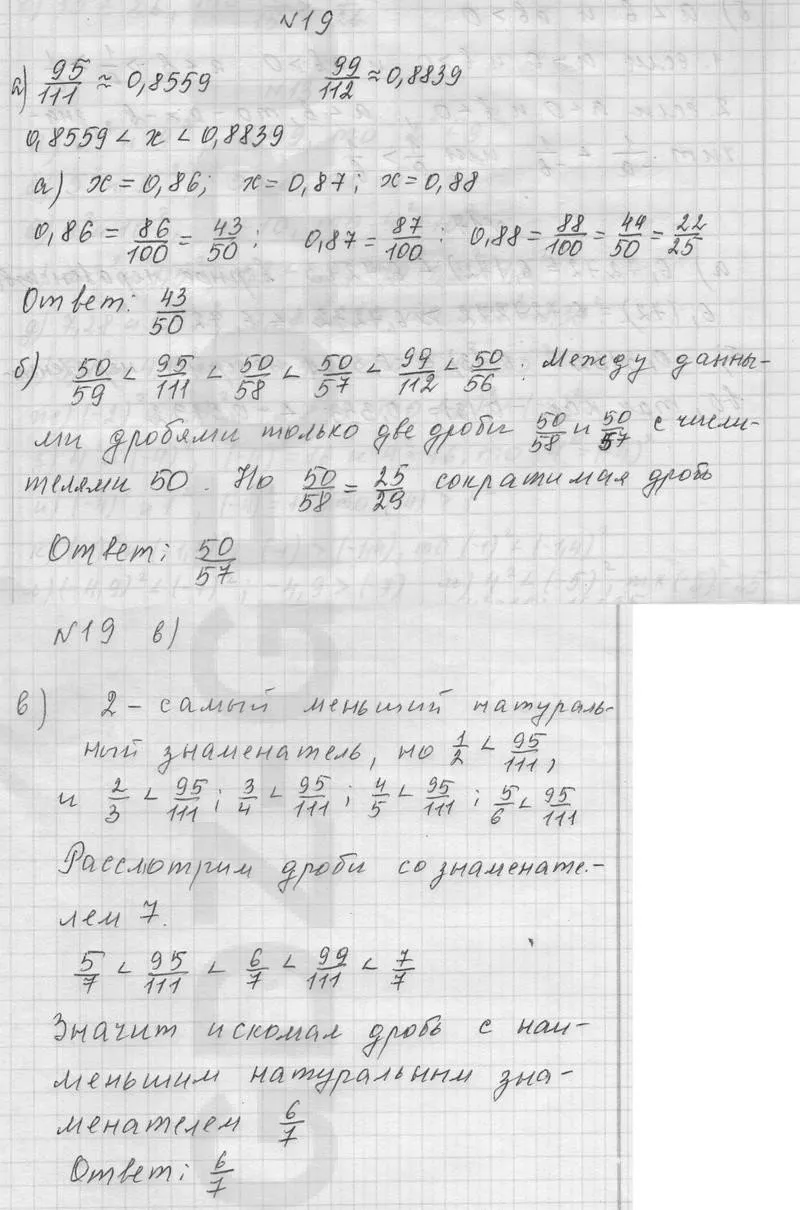 №19
а) 95/111 ≈ 0,8559   99/112 ≈ 0,8839
0,8559 < x < 0,8839
а) x = 0,86; x = 0,87; x = 0,88
0,86 = 86/100 = 43/50; 0,87 = 87/100; 0,88 = 88/100 = 44/50 = 22/25
Ответ: 43/50
б) 50/59 < 95/111 < 50/58 < 50/57 < 99/112 < 50/56. Между данны-
ми дробями только две дроби 50/58 и 50/57 с числи-
телями 50. Но 50/58 = 25/29 сократимая дробь
Ответ: 50/57
№19 в)
в) 2 - самый меньший натураль-
ный знаменатель, но 1/2 < 95/111,
и 2/3 < 95/111; 3/4 < 95/111; 4/5 < 95/111; 5/6 < 95/111
Рассмотрим дроби со знаменате-
лем 7.
5/7 < 95/111 < 6/7 < 99/111 < 7/7
Значит искомая дробь с наи-
меньшим натуральным зна-
менателем 6/7
Ответ: 6/7